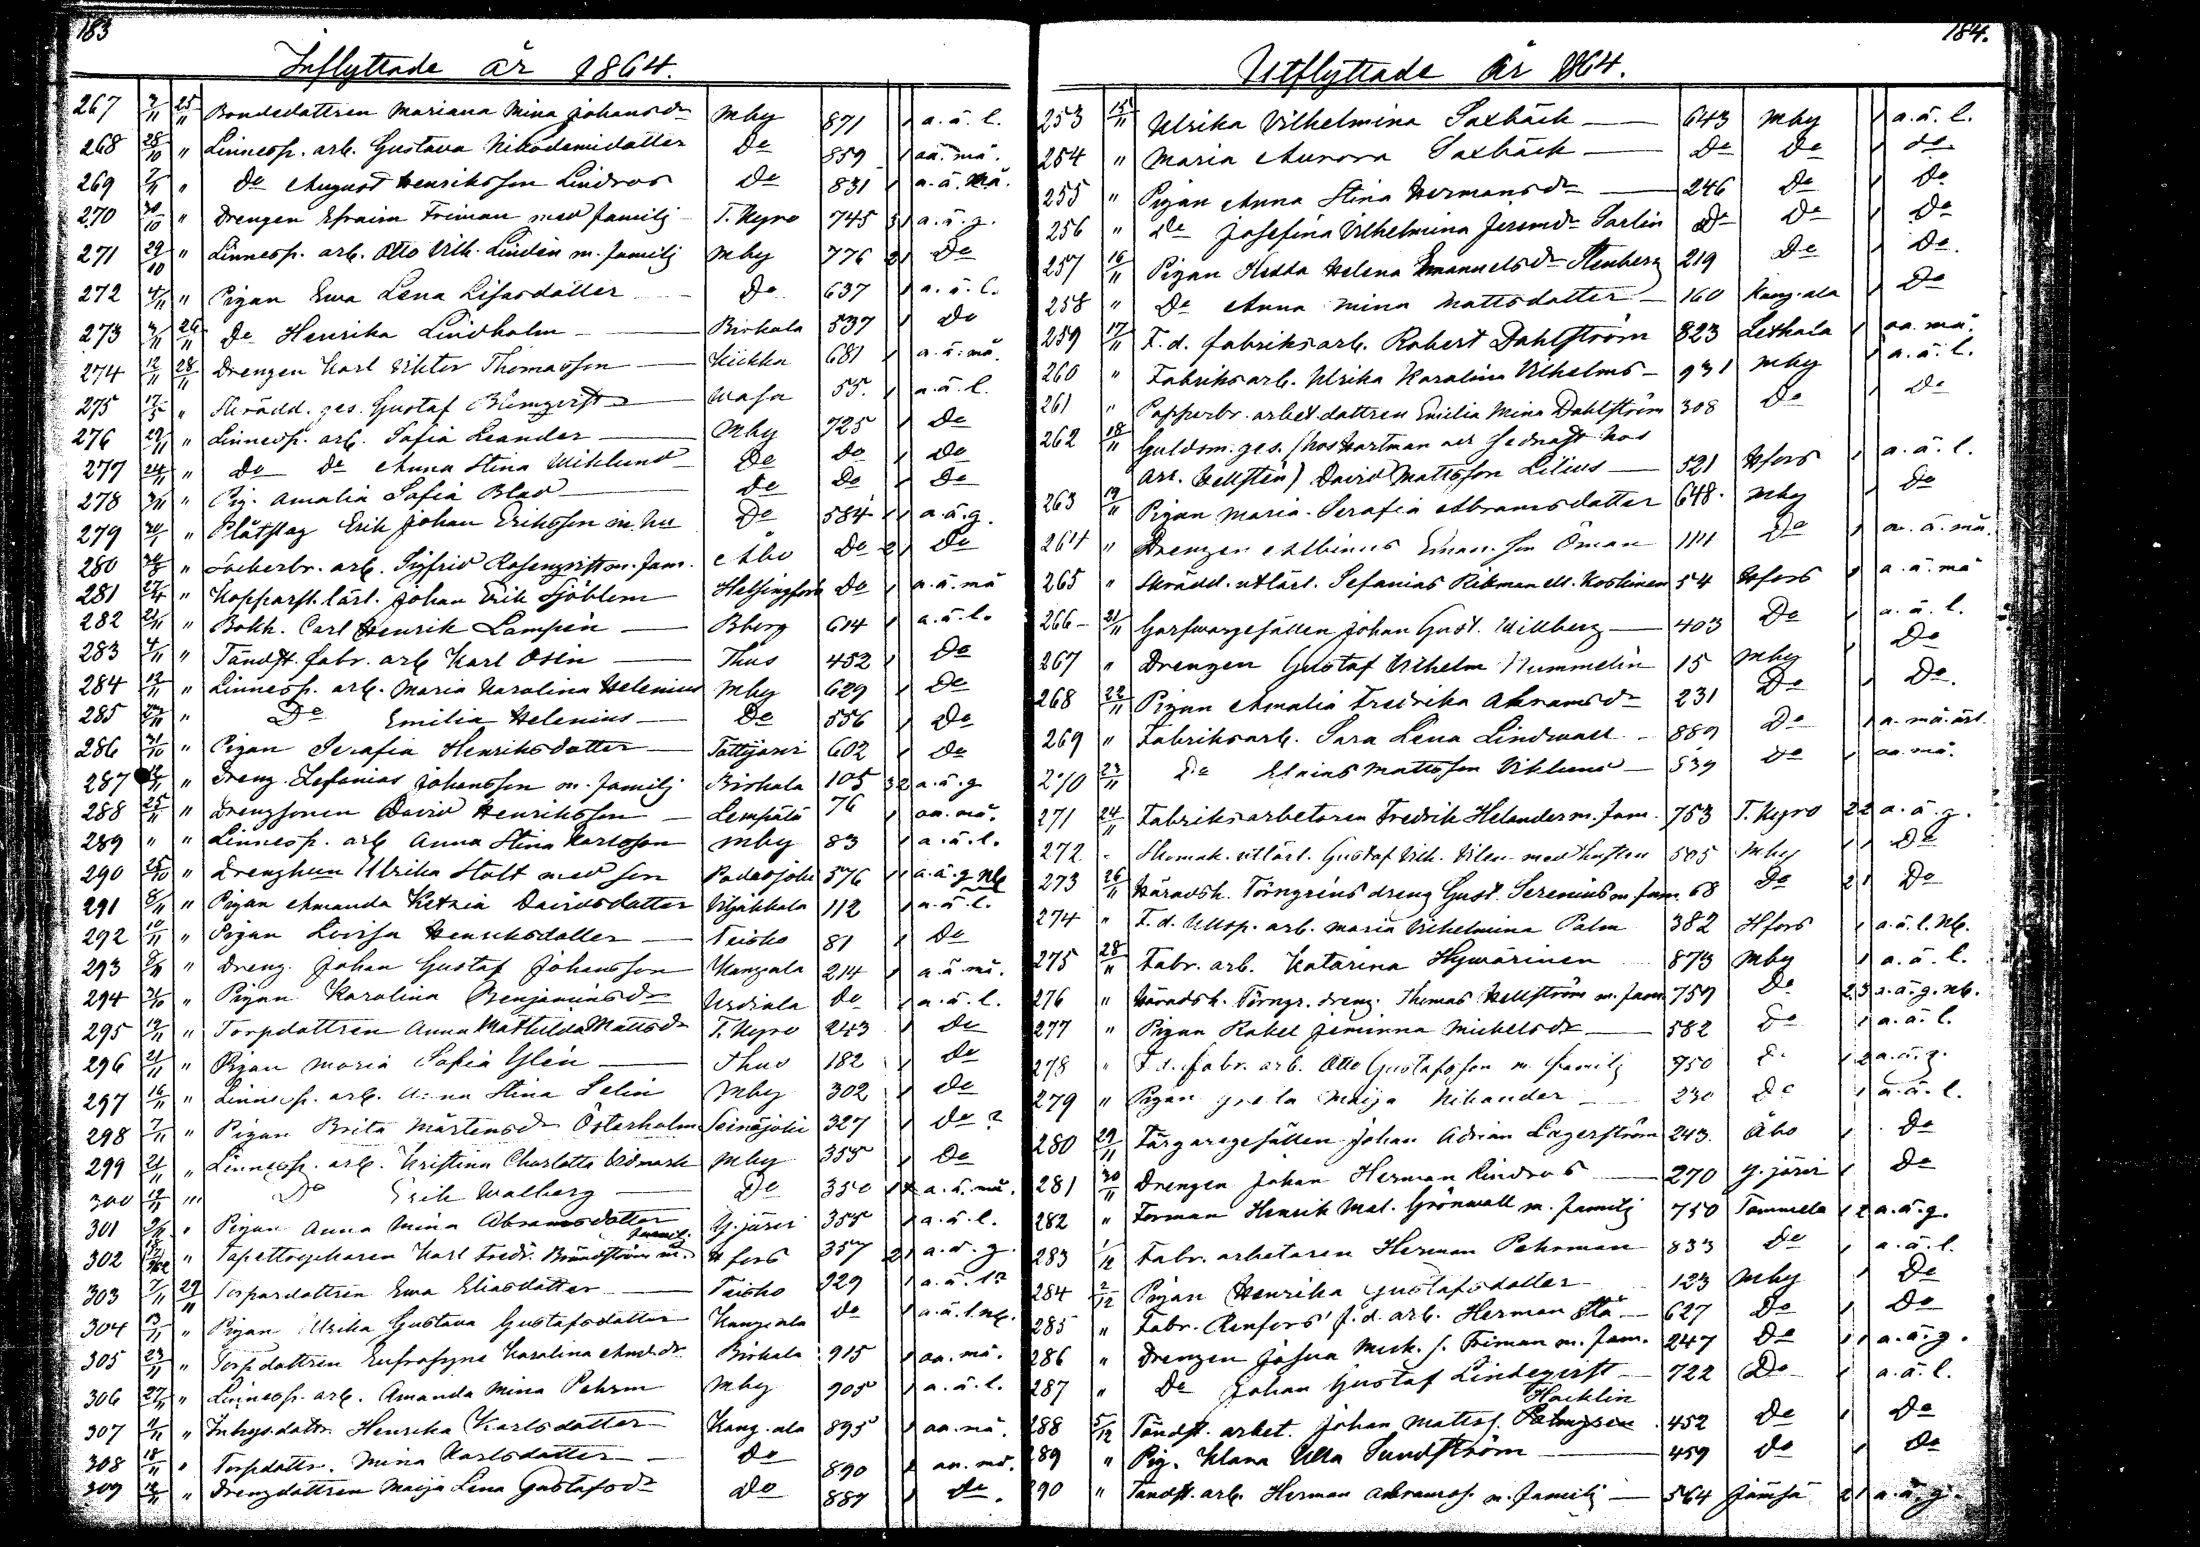 183
Inflyttade år 1864.
267 7/11 25/11 Bondedottren Mariana Mina Johansdr Mby 871 1 a.ä.l.
268 28/10 " Linnesp. arb. Gustava Nikodemidotter Do 859 1 aä.må.
269 7/11 " Do August Henriksson Lindroos Do 831 1 a.ä.må.
270 30/10 " Drengen Efraim Friman med familj T. Kyro 745 3 1 a.ä.g.
271 29/10 " Linnesp. arb. Otto Vilh. Lindén m. familj Mby 776 2 1 Do
272 4/11 " Pigan Ewa Lena Lisasdotter Do 637 1 a.ä.l.
273 3/11 26/11 Do Henrika Lindholm Birkala 537 1 Do
274 12/11 28/11 Drengen Karl Viktor Thomasson Kiikka 681 1 a.ä.må.
275 17/5 " Skrädd. ges. Gustaf Blomqvist Wasa 55. 1 a.ä.l.
276 29/11 " Linnesp. arb. Sofia Leander Mby 725 1 Do
277 24/11 " Do Do Anna Stina Wiklund Do Do 1 Do
278 " Pig. Amalia Sofia Blad Do Do 1 Do
279 " Plåtslag Erik Johan Eriksson m. hu Do 584 1 1 a.ä.g.
280 " Sockerbr. arb. Sigfrid Rosenqvist m. fam. Åbo Do 2 1 Do
281 27/4 " Kopparsl. lärl. Johan Erik Sjöblom Helsingfors Do 1 a.ä.må
282 21/11 " Bokh. Carl Henrik Lampén Bborg 614 1 a.ä.l.
283 4/11 " Tändst. fabr. arb Karl Osén Thus 452 1 Do
284 12/11 " Linnesp. arb. Maria Karolina Helenius Mby 629 1 Do
285 " Do Emilia Helenius Do 556 1 Do
286 31/10 " Pigan Serafia Henriksdotter Tottijärvi 602 1 Do
287 " Dreng. Zefanias Johansson m. familj Birkala 105 3 2 a.ä.g
288 25/11 " Drengsonen David Henriksson Lempälä 76 aa.må.
289 " " Linnesp. arb Anna Stina Karlsson Mby 83 1 a.ä.l.
290 25/10 " Drenghun Ulrika Stolt med son Padasjoki 576 1 1 a.ä.g nb
291 8/11 " Pigan Amanda Ketzia Davidsdotter Viljakkala 112 1 a.ä.l.
292 10/11 " Pigan Lovisa Henriksdotter Teisko 81 1 Do
293 8/11 " Dreng. Johan Gustaf Johansson Kangasala 214 1 a.ä.må.
294 31/10 " Pigan Karolina Benjaminsdr Urdiala Do 1 a.ä.l.
295 12/11 " Torpdottren Anna Mathilda Mattsdr T. Kyro 243 1 Do
296 21/11 " Pigan Maria Sofia Ylén Thus 182 1 Do
297 16/11 " Linnesp. arb. Anna Stina Selin Mby 302 1 Do
298 7/11 " Pigan Brita Mårtensdr Österholm Seinäjoki 327 1 Do ?
299 21/11 " Linnesp. arb. Kristina Charlotta Widmark Mby 355 1 Do
300 " Do Erik Walberg Do 350 1 a.ä.må.
301 " Pigan Anna Mina Abramsdotter Y. järvi 355 1 a.ä.l.
302 " Tapettryckaren Karl Fredr. Brändström m. famil. H fors 357 2 1 a.ä.g.
303 7/11 29/11 Torpardottren Ewa Eliasdotter Teisko 929 1 a.ä.l?
304 13/11 " Pigan Ulrika Gustava Gustafsdotter Kangasala Do 1 a.ä.l.nb.
305 23/11 " Torpdottren Eufrosyne Karolina And.dr Birkala 915 1 aa.må.
306 27/11 " Linnesp. arb. Amanda Mina Pehrm Mby 905 1 a.ä.l.
307 " Inhys.dottr. Henrika Karlsdotter Kang.ala 895 1 aa.må.
308 18/11 " Torpdottr. Mina Karlsdotter Do 890 1 aa.må.
309 12/11 " Drengdottren Maija Lena Gustafsdr Do 887 1 Do.
184.
Utflyttade år 1864.
253 15/11 Ulrika Vilhelmina Saxbäck 643 Mby 1 a.ä.l.
254 " Maria Aurora Saxbäck Do Do 1 do
255 " Pigan Anna Stina Hermansdr 246 Do 1 Do
256 " Do Josefina Vilhelmina Jeremdr Sarlin Do Do 1 Do
257 16/11 Pigan Hedda Helena Emanuelsdr Stenberg 219 Do 1 Do.
258 " Do Anna Mina Mattsdotter 160 Kang.ala 1 Do
259 17/11 F.d. fabriksarb. Robert Dahlström 823 Lethala 1 aa.må.
260 " Fabriksarb. Ulrika Karolina Vilhelms 931 Mby 1 a.ä.l.
261 " Papperbr. arbet.dottren Emilia Mina Dahlström 308 Do 1 Do
262 18/11 Guldsm. ges. (hos Hartman och sednast hos
Arv. Hellstén) David Mattsson Lilius 521 Hfors 1 a.ä.l.
263 19/11 Pigan Maria Serafia Abramsdotter 648. Mby Do
264 " Drengen Albinus Eman. son Öman 144 Do 1 a.ä.må.
265 " Skrädd. utlärl. Sefanias Rikman ell. Koskinen 54 Hfors 1 a.ä.må
266 21/11 Garfvaregesällen Johan Gust. Willberg 403 Do 1 a.ä.l.
267 " Drengen Gustaf Vilhelm Nummelin 15 Mby 1 Do
268 22/11 Pigan Amalia Fredrika Abramsdr 231 Do 1 Do.
269 " Fabriksarb. Sara Lena Lindwall 889 Do 1 a.må.
270 23/11 Do Elaias Mattsson Viklund 539 Do 1 aa.må.
271 24/11 Fabriksarbetaren Fredrik Helander m. fam. 753 T. Kyro 2 2 a.ä.g.
272 Skomak. utlärl. Gustaf Vilh. Vilen med hustru 505 Mby 1 1 Do
273 26/11 Häradsh. Törngréns dreng Gust. Serenius m. fam. 68 Do 2 1 Do
274 " F.d. Ullsp. arb. Maria Vilhelmina Palm 382 Hfors 1 a.ä.l.Nb.
275 28/11 Fabr. arb. Katarina Hywärinen 873 Mby 1 a.ä.l.
276 " Häradsh. Törngr. dreng. Thomas Hellström m. fam 759 Do 2 3 a.ä.g.nb.
277 " Pigan Rakel Jeminna Mickelsdr 582 Do 1 a.ä.l.
278 " F.d. fabr. arb. Otto Gustafsson m. familj 750 Do 1 2 a.ä.g.
279 " Pigan Greta Maija Nikander 230 Do 1 a.ä.l.
280 29/11 Färgaregesällen Johan Adrian Lagerström 243. Åbo 1 Do
281 30/11 Drengen Johan Herman Lindros 270 Y. järvi 1 Do
282 " Forman Henrik Mat. Grönwall m. familj 750 Tammela 1 2 a.ä.g.
283 1/12 Fabr. arbetaren Herman Pehrman 833 Do 1 a.ä.l.
284 2/12 Pigan Henrika Gustafsdotter 123 Mby 1 Do
285 " Fabr. Renfors' f.d. arb. Herman Stå 627 Do 1 Do
286 " Drengen Josua Mick. s. Friman m. fam. 247 Do 1 1 a.ä.g.
287 " Do Johan Gustaf Lindeqvist 722 Do 1 a.ä.l.
Hacklin
288 5/12 Tändst. arbet. Johan Mattss. 452 Do 1 Do
289 " Pig. Klara Ulla Sundström 459 Do 1 Do
290 " Tändst. arb. Herman Abramss. m. familj 564 Jämsä 2 1 a.ä.g.